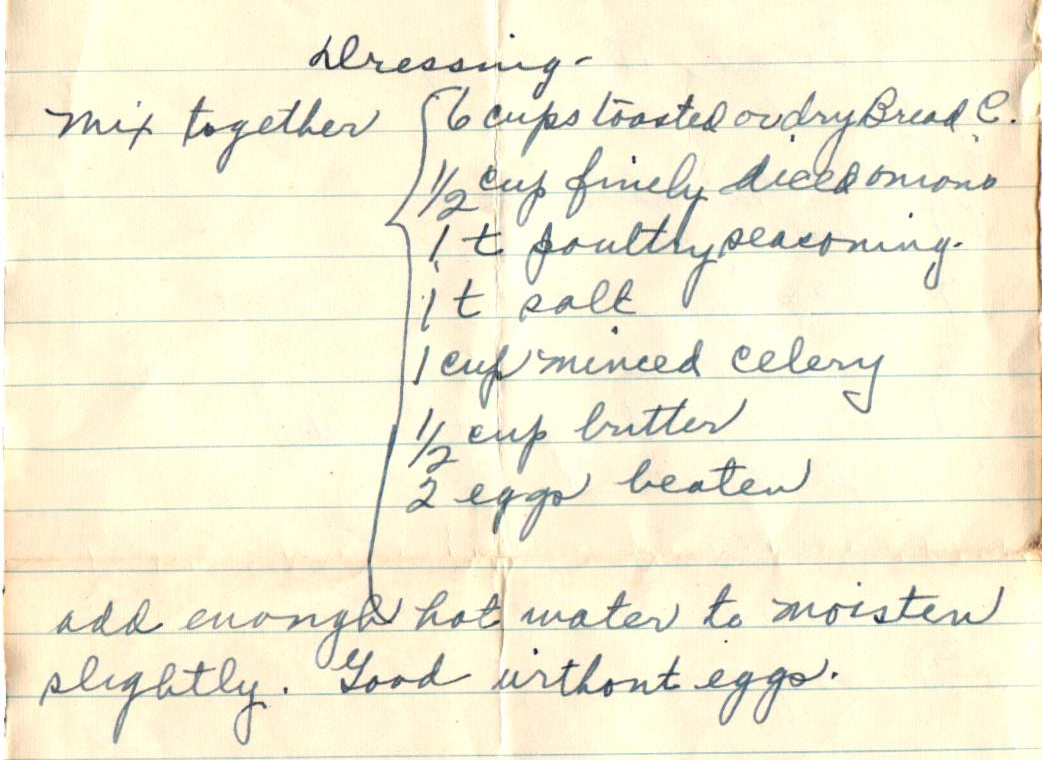 Dressing-
Mix together { 6 cups toasted or dry Bread C.
1/2 cup finely diced onions
1 t poultry seasoning.
1 t salt
1 cup minced celery
1/2 cup butter
2 eggs beaten
add enough hot water to moisten
slightly. Good without eggs.